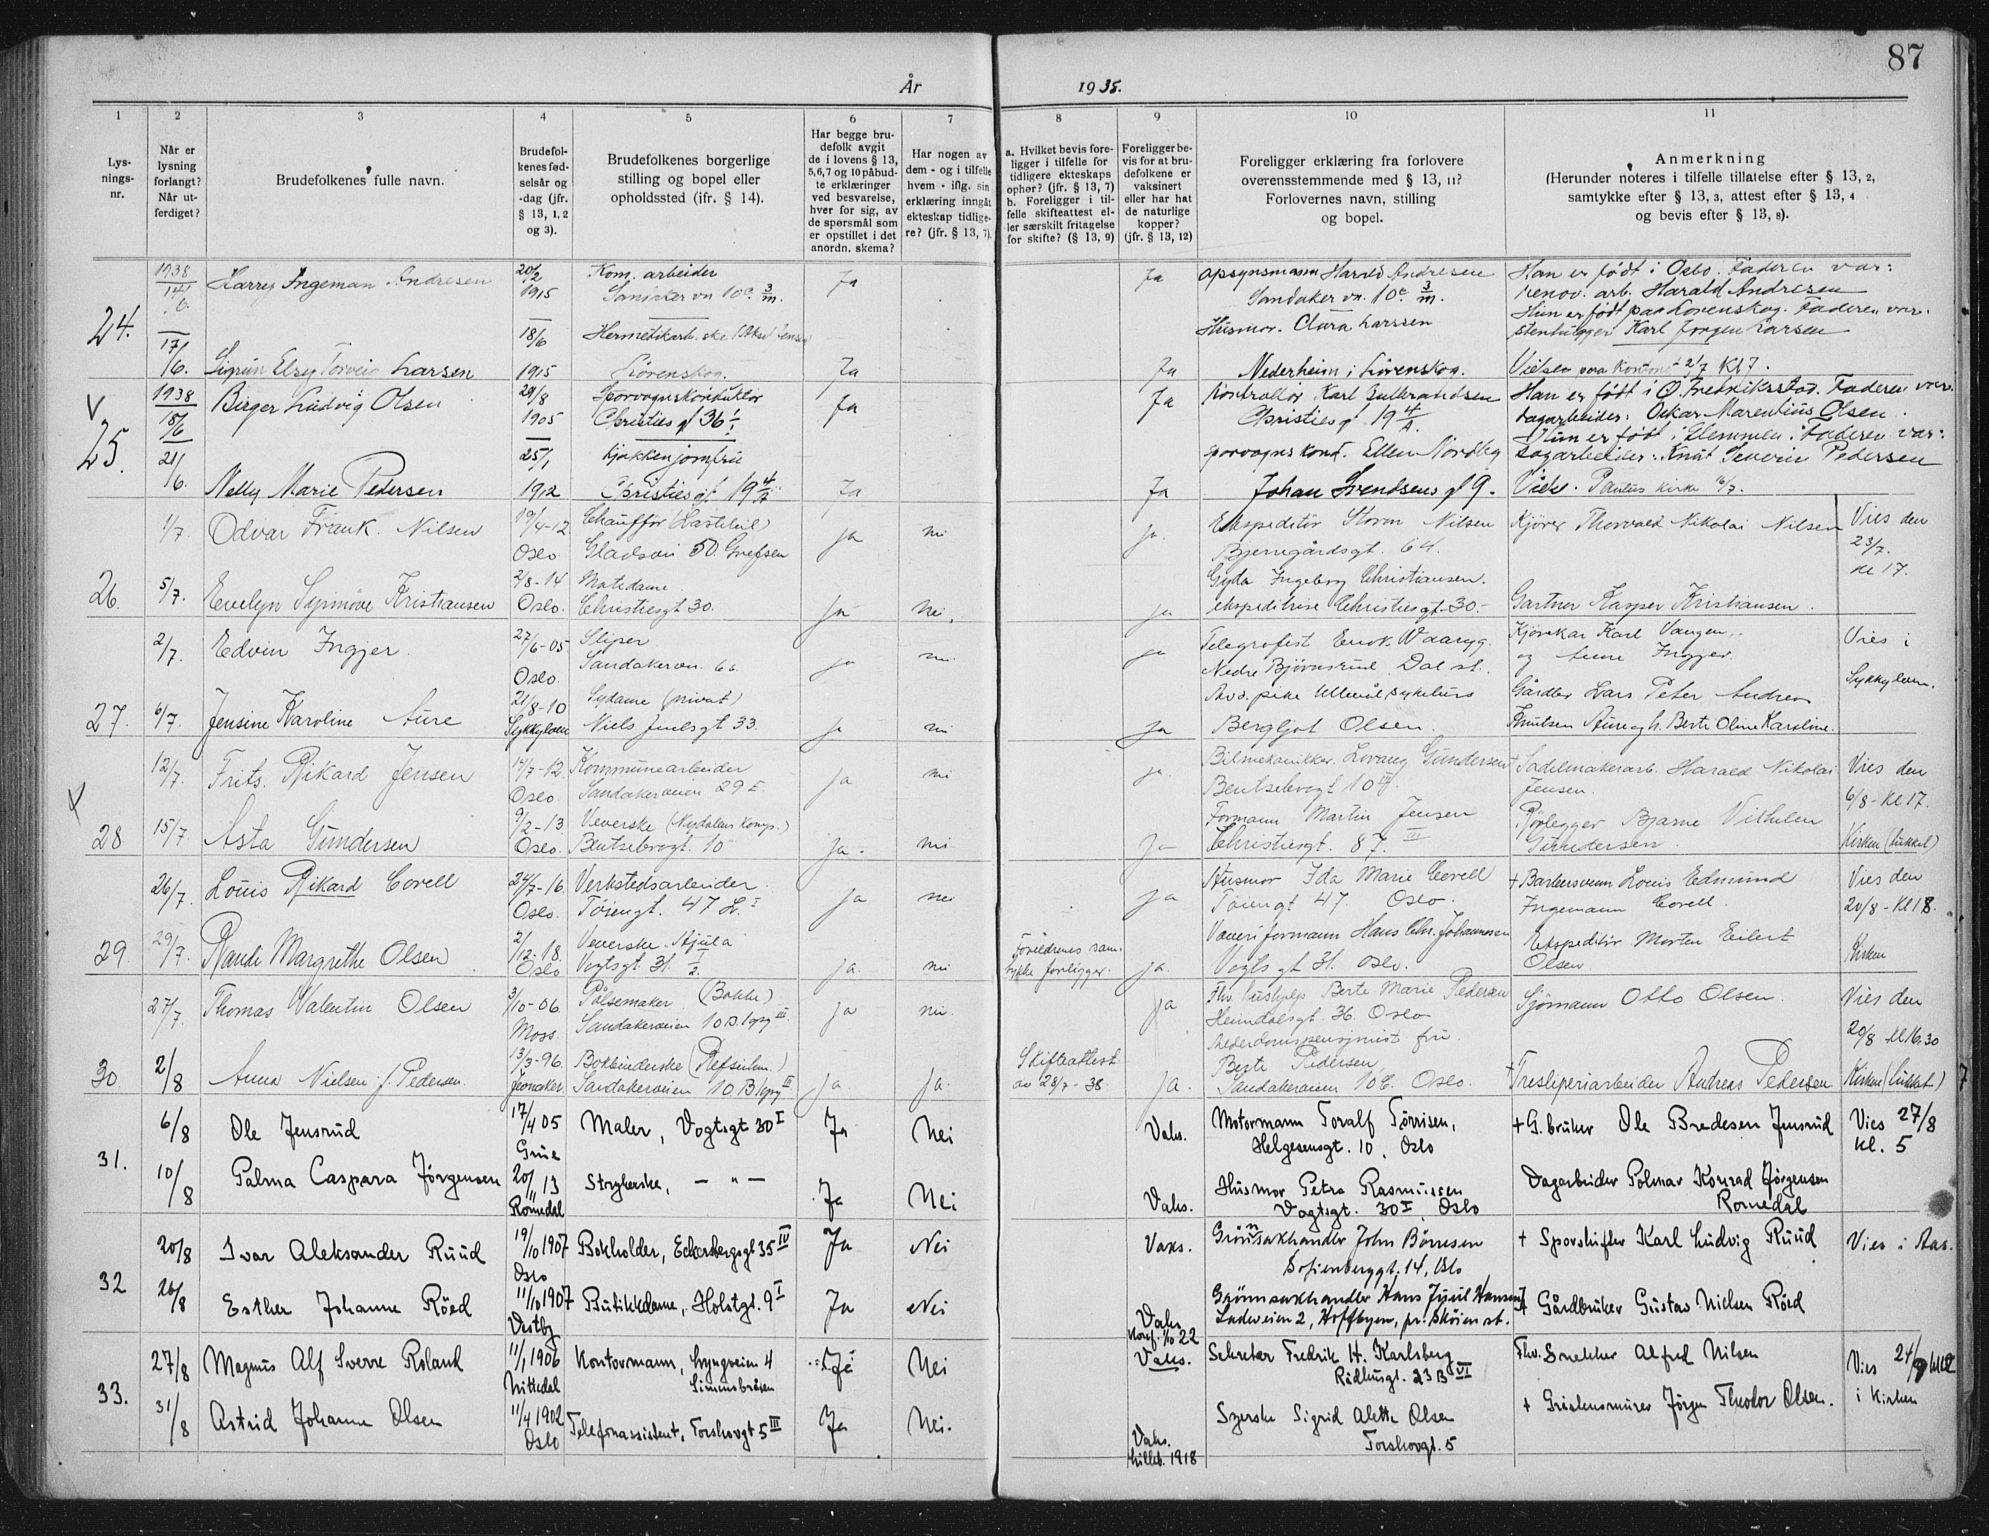 87
År 1938.
1 2 3 4 5 6 7 8 9 10 11
Lysningsnr.
Når er lysning forlangt? Når utferdiget?
Brudefolkenes fulle navn.
Brudefolkenes fødselsår og -dag (jfr. § 13, 1, 2 og 3).
Brudefolkenes borgerlige stilling og bopel eller opholdssted (jfr. § 14).
Har begge brudefolk avgit de i lovens § 13, 5, 6, 7 og 10 påbudte erklæringer ved besvarelse, hver for sig, av de spørsmål som er opstillet i det anordn. skema?
Har nogen av dem - og i tilfelle hvem - iflg. sin erklæring inngåt ekteskap tidligere? (jfr. § 13, 7).
a. Hvilket bevis foreligger i tilfelle for tidligere ekteskaps ophør? (jfr. § 13, 7) b. Foreligger i tilfelle skifteattest eller særskilt fritagelse for skifte? (§ 13, 9)
Foreligger bevis for at brudefolkene er vaksinert eller har hat de naturlige kopper? (jfr. § 13, 12)
Foreligger erklæring fra forlovere overensstemmende med § 13, 11? Forlovernes navn, stilling og bopel.
Anmerkning (Herunder noteres i tilfelle tillatelse efter § 13, 2, samtykke efter § 13, 3, attest efter § 13, 4 og bevis efter § 13, 8).
24.
1938 14/6. Harry Ingeman Andresen 20/2 1915 Kom. arbeider Sandaker vn 10c 3/m. Ja Ja Opsynsmann Harald Andresen Sandaker vn. 10c 3/m. Han er født i Oslo. Faderen var: renov. arb. Harald Andresen
17/6. Sigrun Elsy Torveig Larsen 18/6 1915 Lørenskog. Ja Ja Husmor. Clara Larssen Nederheim i Lørenskog. Hun er født paa Lørenskog. Faderen var. stenhugger Karl Jørgen Larsen 2/7 Kl 7.
V 25.
1938 18/6 Birger Ludvig Olsen 29/8 1905 Sporvognskonduktør Christies gt 36 1/1 Ja Ja Kontrollør Karl Gulbrandsen Christies gt 19 4/A. Han er født i Ø. Fredriksstad. Faderen var dagarbeider: Oskar Marentius Olsen.
21/6. Nelly Marie Pedersen 25/1 1912 Kjøkkenjomfru Christies gt 19 4/A Ja Ja sporvognskond. Ellen Nordby Johan Svendsens gt 9. Hun er født i Glemmen. Faderen var: dagarbeider: Knut Severin Pedersen Viels. Paulus kirke 16/7.
26.
1/7. Odvar Frank. Nilsen 19/4-12 Oslo. Chauffør (Lastebil) Gladvei 50. Grefsen Ja nei ja. Ekspeditør Storm Nilsen Bjerregårdsgt. 64. Kjører Thorvald Nikolai Nilsen Vies den 23/7. kl 17.
5/7. Evelyn Synnøve Kristiansen 2/8-14 Oslo. Motedame Christiesgt 30. Ja Nei, ja Gyda Ingeborg Christiansen. ekspeditrise Christiesgt-30.- Gartner Kasper Kristiansen.
27.
2/7. Edvin Ingjer. 27/6-05 Oslo. Sliper Sandakervn. 66. ja nei ja Telegrafist Enok. Waaryg. Nedre Bjørnsrud Dal st. Kjørekar Karl Vangen.. og Anne Ingjer. Vies i Sykkylven.
6/7. Jensine Karoline Aure 21/8-10 Sykkylven Sydame (privat) Niels Juelsgt 33. ja nei ja Avd. pike Ullevål sykehus Bergljot Olsen. Gårdbr Lars Peter Andreas Knutsen Aure og h. Berte Oline Karoline.
28.
12/7. Frits. Rikard Jensen 14/7-12 Oslo. Kommunearbeider Sandakerveien 29 I. Ja nei ja Bilmekanikker Lorang Gundersen Bentsebrogt 10 III. + Sadelmakerarb. Harald Nikolai Jensen. Vies den 6/8-Kl 17.
15/7. Asta Gundersen 9/2-13 Oslo. Veverske (Nydalens Komp.) Bentsebrogt. 10 Ja. nei Ja Formann Martin Jensen Christiesgt. 87. III Rørlegger Bjarne Vilhelm Gundersen. Kirken (lukket)
29.
26/7. Louis Rikard Corell 24/7-16. Oslo. Verkstedsarbeider. Tøiengt. 47 L. I Ja nei ja Husmor Ida Marie Corell Tøiengt 47. Oslo. + Barbersvenn Louis Edmund Ingemann Corell. Vies den 20/8-Kl 18.
29/7. Randi Margrethe Olsen 2/12-18. Oslo Veverske-Hjula Vogtsgt. 31. I/2. ja. nei Foreldrenes samtykke foreligger. ja. Væveriformann Hans Chr. Johannesen Vogtsgt 31. Oslo. Ekspeditør Morten Eilert Olsen Kirken
30.
27/7. Thomas Valentin Olsen 3/10-06. Moss. Pølsemaker (Bakke) Sandakerveien 10 B. opg III. ja nei. ja Fhv. hushjelp Berte Marie Pedersen Heimdalsgt. 36. Oslo Sjømann Otto Olsen. Vies den 20/8 kl 16.30
2/8 Anna Nielsen f. Pedersen. 13/3-96. Jeønaker. Bokbinderske (Refsum.) Sandakerveien 10 B opg III ja. ja. Skifteattest av 28/7-38. ja. Alderdomspensjonist fru Berte Pedersen, Sandakerveien 10 C. Oslo. + Tresliperiarbeider Andreas Pedersen Kirken (lukket)
31.
6/8 Ole Jensrud 17/4 05 Grue Maler, Vogtsgt 30 I Ja Nei Vaks. Motormann Toralf Tørrisen, Helgesensgt. 10, Oslo + G.bruker Ole Bredesen Jensrud Vies 27/8 kl. 5
10/8 Palma Caspara Jørgensen 20/11 13 Romedal Strykerske, - " - Ja Nei Vaks. Husmor Petra Rasmussen Vogtsgt. 30 I, Oslo Dagarbeider Polmar Konrad Jørgensen Romedal
32
20/8 Ivar Aleksander Ruud 19/10 1907 Oslo Bokholder, Eckersbergsgt 35 IV Ja Nei Vaks. Grønnsakhandler John Børresen Sofienberggt. 14, Oslo + Sporskifter Karl Ludvig Ruud Vies i Aas.
26/8 Esther Johanne Røed 11/10 1907 Vestby Butikkdame, Holstgt. 9 I Ja Nei Vaks. Grønnsakhandler Hans Juul Hansen Ladeveien 2, Hoffbyen, pr. Skøien st. + Gårdbruker Gustav Nielsen Røed
33.
27/8 Magnus Alf Sverre Roland 11/1 1906 Nittedal Kontormann, Lyngveien 4 Simensbråten Ja Nei Konf. 1/10 22 Vaks. Sekretær Fredrik H. Karlsberg Rådhusgt. 23 B VI Fhv. Snekker Alfred Nilsen Vies 24/9 i Kirken
31/8 Astrid Johanne Olsen 11/4 1902 Oslo Telefonassistent, Torshovgt 5 III Ja Nei. Vaks. 1918 Syerske Sigrid Alette Olsen Torshovgt. 5 + Gråstensmurer Jørgen Theodor Olsen.